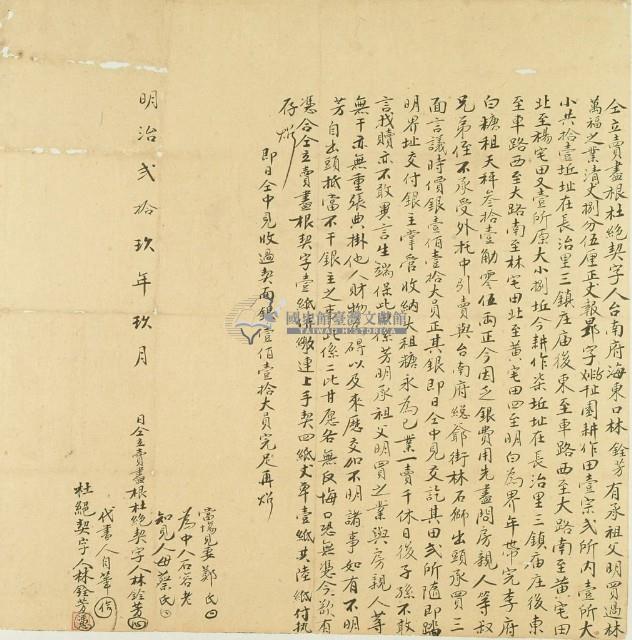 仝立賣盡根杜絕契字人台南府海東口林銓芳有承祖父明買過林
萬福之業清丈捌分伍厘正丈報 字 坵園耕作田壹宗弍所內壹所大
小共拾壹坵址在長治里三鎮庄庙後東至車路西至大路南至黄宅田
北至楊宅田又壹所原大小捌坵今耕作柒坵址在長治里三鎮庙庄後東
至車路西至大路南至林宅田北至黄宅田四至明白為界年帶完李府
白糖租天秤叁拾壹觔零伍両正今因乏銀費用先盡問房親人等叔
兄弟侄不承受外托中引賣與台南府總爺街林石獅出頭承買三
面言議時價銀壹佰壹拾大員正其銀即日仝中見交訖其田弍所隨即踏
明界址交付銀主掌管收納大租糖永為已業一賣千休日後子孫不敢
言找贖亦不敢異言生端保此係芳明承祖父明買之業與房親人等
無干亦無重張典掛他人財物 碍以及來歷交加不明諸事如有不明
芳自出頭抵當不干銀主之事此係二比甘愿各無反悔口恐無憑今欲有
憑合仝立賣盡根契字壹紙 繳連上手契四紙丈單壹紙共陸紙付執
存炤
即日仝中見收過契面銀壹佰壹拾大員完足再炤
明治弍拾玖年玖月 日仝立賣盡根杜絕契字人林銓芳
當場見 鄭氏
為中人石谷老
知見人母蔡氏
代書人自筆
杜絕契字人林銓芳
國史館臺灣文獻館
TAIWAN HISTORICA